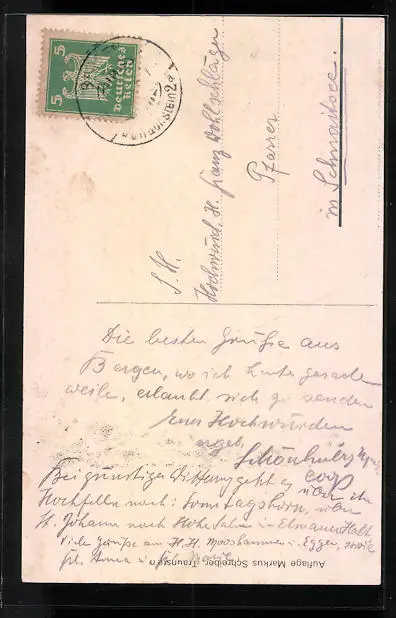 5 Deutsches Reich 5
S. H.
Hochwürd. H. Franz Wohlschläger
Pfarrer
in Schnaitsee.
Die besten Grüße aus
Bergen, wo ich heute gerade
weile, erlaubt sich zu senden
Euer Hochwürden
ergeb.
Bei günstiger Witterung geht es über den
Hochfelln nach: Sonntagshorn, über
St. Johann nach Hohe Salve u. Elmauer Halt
Viele Grüße an H. H. Mooshammer u. Egger, sowie
Frl. Anna u.
Auflage Markus Schreiber, Traunstein